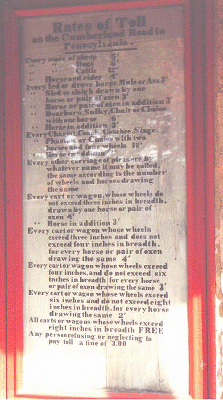 Rates of Toll
on the Cumberland Road in
Pennsylvania
Every score of sheep 6¢
" " Hogs 6¢
" " Cattle
Horse and rider 4¢
Every led or drove horse, Mule or Ass 3¢
Sled or sleigh drawn by one
horse or pair of oxen 3¢
Horse or pair of oxen in addition 3¢
Dearborn, Sulky, Chair or Chaise
with one horse 6¢
Horse in addition 3¢
Every Chariot, Coach, Coachee, Stage,
Phaeton or Chaise with two
horses and four wheels
Horse in addition
Every other carriage of pleasure by
whatever name it may be called,
the same according to the number
of wheels and horses drawing
the same
Every cart or wagon, whose wheels do
not exceed three inches in breadth,
drawn by one horse or pair of
oxen 4¢
Horse in addition 3¢
Every cart or wagon whose wheels
exceed three inches and does not
exceed four inches in breadth,
for every horse or pair of oxen
drawing the same 4¢
Every cart or wagon whose wheels exceed
four inches, and do not exceed six
inches in breadth for every horse
or pair of oxen drawing the same 3¢
Every cart or wagon whose wheels exceed
six inches and do not exceed eight
inches in breadth, for every horse
drawing the same 2¢
All carts or wagons whose wheels exceed
eight inches in breadth FREE
Any person refusing or neglecting to
pay toll a fine of 3.00